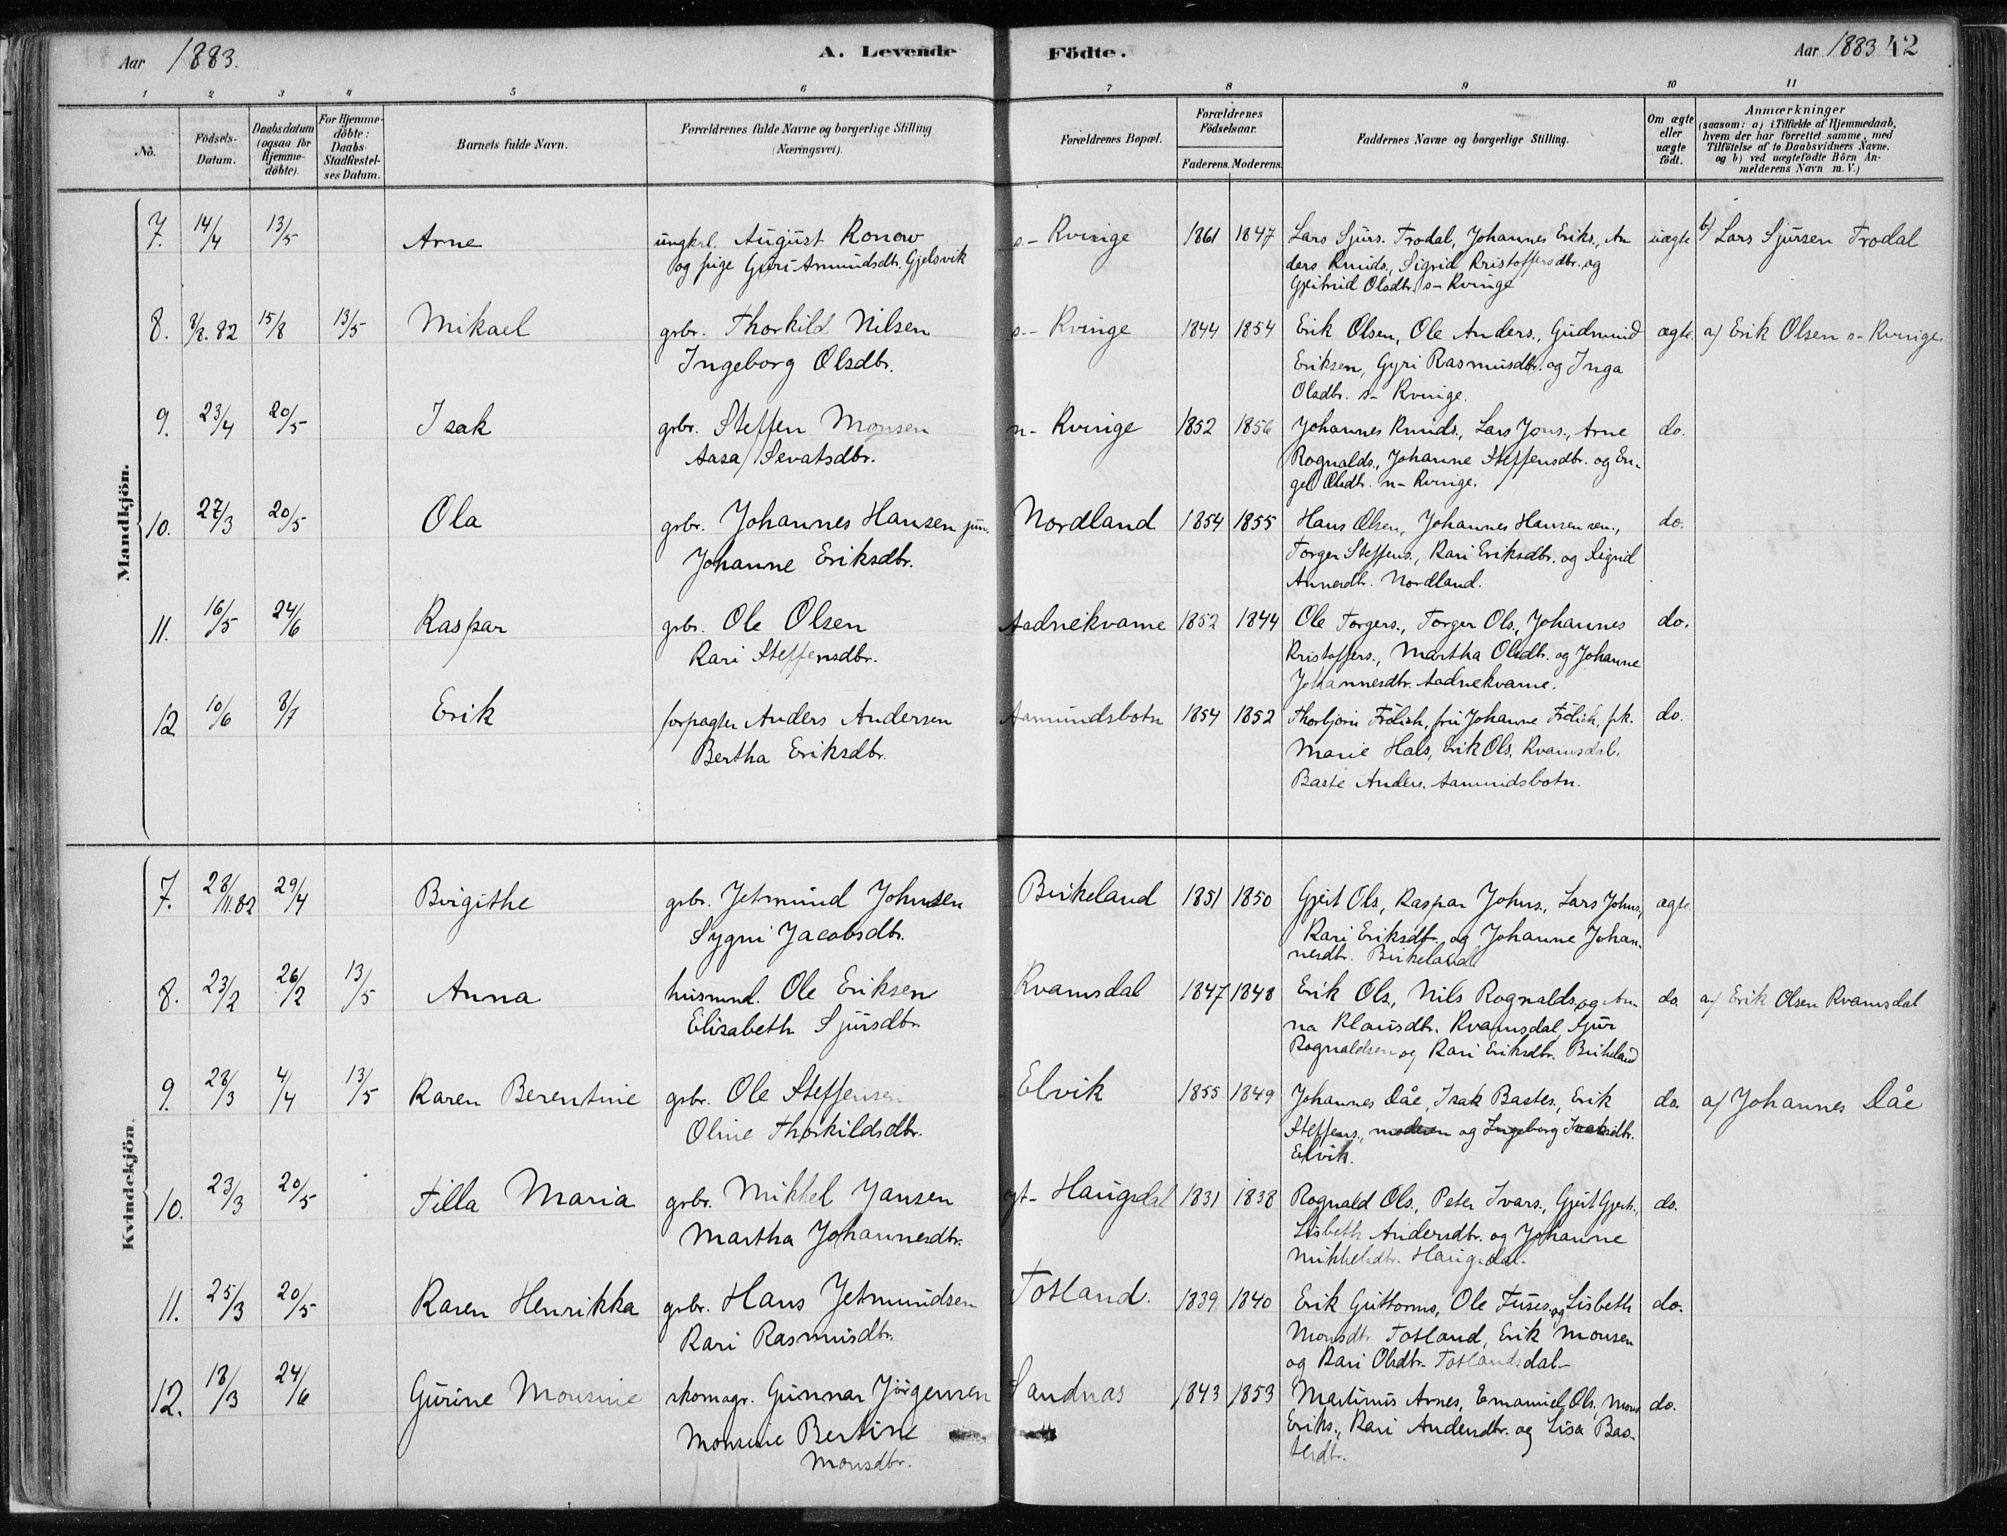 Aar 1883.
A. Levende Födte.
Aar 1883 42
1 2 3 4 5 6 7 8 9 10 11
No.
Födsels-Datum.
Daabsdatum (ogsaa for Hjemme-döbte).
For Hjemme-döbte: Daabs-Stadfæstel-ses Datum.
Barnets fulde Navn.
Forældrenes fulde Navne og borgerlige Stilling (Næringsvei).
Forældrenes Bopæl.
Forældrenes Födselsaar.
Faderens. Moderens.
Faddernes Navne og borgerlige Stilling.
Om ægte eller uægte födt.
Anmærkninger
(saasom: a) i Tilfælde af Hjemmedaab,
hvem der har forrettet samme, med
Tilföielse af to Daabsvidners Navne.
og b) ved uægtefödte Börn An-
melderens Navn m. V.)
Mandkjön.
7. 14/4 13/5 Arne ungkrl. August Konow s- Kvinge 1861 1847 Lars Sjurs. Trodal, Johannes Eriks., An uægte b) Lars Sjursen Trodal
og pige Guri Amundsdtr. Gjelsvik ders Knuds., Sigrid Kristoffersdtr. og
Gjertrud Olsdtr. s- Kvinge
8. 8/8. 82 15/8 13/5 Mikael gsbr. Thorkild Nilsen s- Kvinge 1844 1854 Erik Olsen, Ole Anders., Gudmund ægte. a) Erik Olsen s- Kvinge.
Ingeborg Olsdtr. Eriksen, Gyri Rasmusdtr. og Inga
Olsdtr. s- Kvinge.
9. 23/4 20/5 Isak gsbr. Steffen Monsen n- Kvinge 1852 1856 Johannes Knuds., Lars Jons., Arne do.
Aasa Sevatsdtr. Rognalds., Johanne Steffensdtr. og En-
gel Olsdtr. n- Kvinge.
10. 27/3 20/5 Ola gsbr. Johannes Hansen jun. Nordland 1854 1855 Hans Olsen, Johannes Hansen sen., do.
Johanne Eriksdtr. Torger Steffens., Kari Eriksdtr. og Sigrid
Annesdtr. Nordland.
11. 16/5 24/6 Kaspar gsbr. Ole Olsen Aadnekvame 1852 1844 Ole Torgers., Torger Ols., Johannes do.
Kari Steffensdtr. Kristoffers., Martha Olsdtr. og Johanne
Johannesdtr. Aadnekvame.
12 10/6 8/7 Erik forpagter Anders Andersen Aamundsbotn 1854 1852 Thorbjørn Frölich, fru Johanne Frölich, frk. do.
Bertha Eriksdtr. Marie Hals, Erik Ols. Kvamsdal.
Baste Anders. Aamundsbotn.
Kvindekjön.
7. 28/11.82 29/4 Brigithe gsbr. Jetmund Johnsen Birkeland 1851 1850 Gjert Ols., Kaspar Johns., Lars Johns., ægte
Sygni Jacobsdtr. Kari Eriksdtr. og Johanne Johan-
nesdtr. Birkeland
8. 23/2 26/2 13/5 Anna husmnd. Ole Eriksen Kvamsdal 1847 1848 Erik Ols., Nils Rognalds. og An- do. a) Erik Olsen Kvamsdal
Elisabeth Sjursdtr. na Klausdtr. Kvamsdal, Sjur
Rognaldsen og Kari Eriksdtr. Birkeland
9. 28/3 4/4 13/5 Karen Berentine gsbr. Ole Steffensen Elvik 1855 1849 Johannes Dåe, Isak Bastes., Erik do. a) Johannes Dåe
Oline Thorkildsdtr. Steffens., moderen og Ingeborg Isaksdtr.
Elvik.
10. 23/3 20/5 Tilla Maria gsbr. Mikkel Jansen yt- Haugsdal 1831 1838 Rognald Ols., Peter Ivars., Gjert Gjerts., do.
Martha Johannesdtr. Lisbeth Andersdtr. og Johanne
Mikkelsdtr. Haugsdal.
11. 25/3 20/5 Karen Henrikka gsbr. Hans Jetmundsen Totland. 1839 1840 Erik Guttorms., Ole Tuses. og Lisbeth do.
Kari Rasmusdtr. Monsdtr. Totland, Erik Monsen
og Kari Olsdtr. Totlandsdal-
12. 18/3 24/6 Gurine Monsine skomagr. Gunnar Jørgensen Sandnæs 1843 1853 Martinus Arnes, Emanuel Ols., Mons do.
Monsine Bertine Eriks., Kari Andersdtr. og Lisa Bas-
Monsdtr. tesdtr.